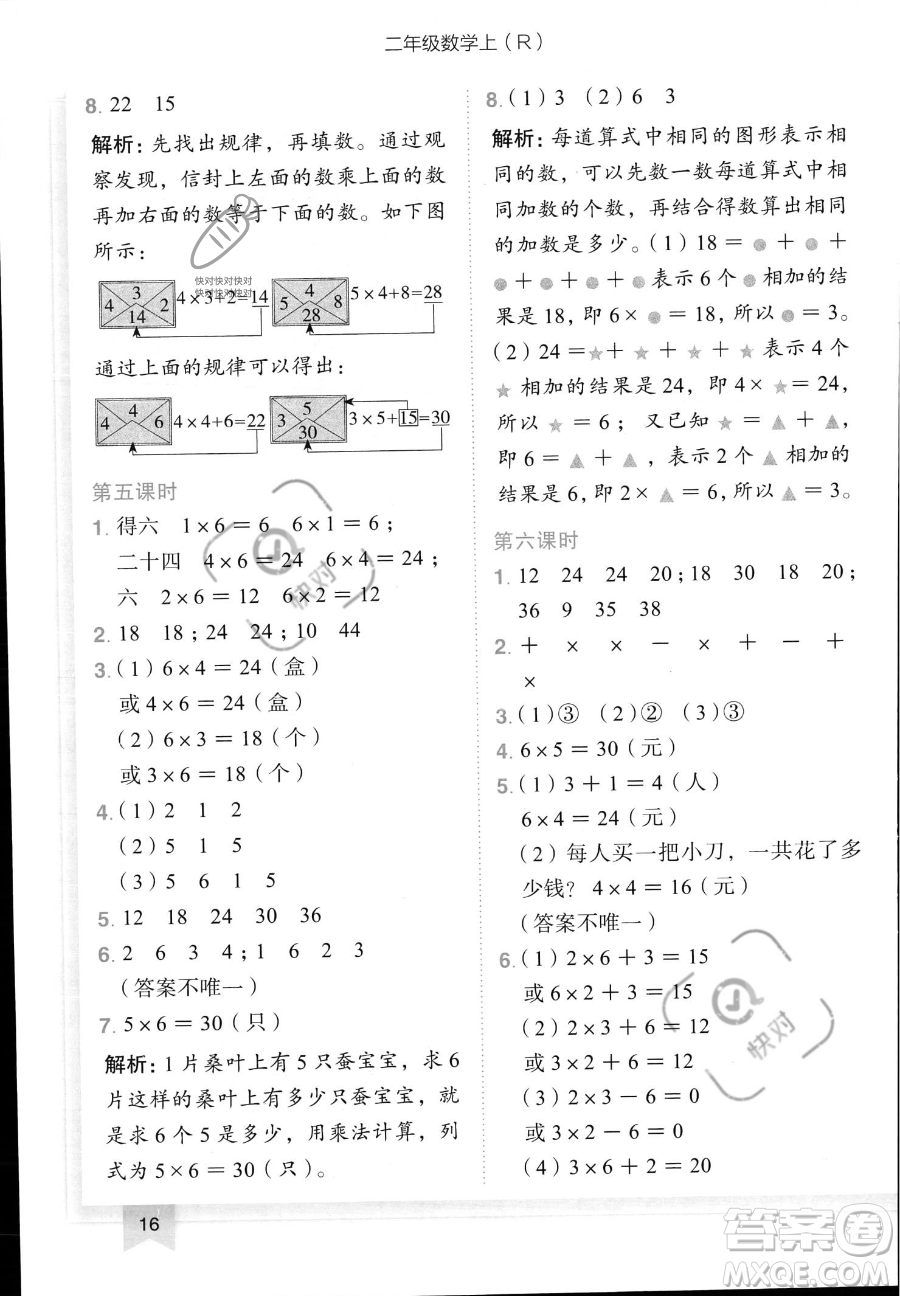 二年级数学上（R）
8. 22 15
解析：先找出规律，再填数。通过观
察发现，信封上左面的数乘上面的数
再加右面的数等于下面的数。如下图
所示：
快对快对快对
快对快对快对
4 3 2 14 4×3+2=14 5 4 8 28 5×4+8=28
通过上面的规律可以得出：
4 4 6 4×4+6=22 3 5 30 3×5+15=30
第五课时
1. 得六 1×6＝6 6×1＝6；
二十四 4×6＝24 6×4＝24；
六 2×6＝12 6×2＝12
2. 18 18；24 24；10 44
3.（1）6×4＝24（盒）
或4×6＝24（盒）
（2）6×3＝18（个）
或3×6＝18（个）
4.（1）2 1 2
（2）5 1 5
（3）5 6 1 5
5. 12 18 24 30 36
6. 2 6 3 4；1 6 2 3
（答案不唯一）
7. 5×6＝30（只）
解析：1片桑叶上有5只蚕宝宝，求6
片这样的桑叶上有多少只蚕宝宝，就
是求6个5是多少，用乘法计算，列
式为5×6＝30（只）。
16
8.（1）3 （2）6 3
解析：每道算式中相同的图形表示相
同的数，可以先数一数每道算式中相
同加数的个数，再结合得数算出相同
的加数是多少。（1）18＝●＋●＋
●＋●＋●＋●表示6个●相加的结
果是18，即6×●＝18，所以●＝3。
（2）24＝★＋★＋★＋★表示4个
★相加的结果是24，即4×★＝24，
所以★＝6；又已知★＝▲＋▲，
即6＝▲＋▲，表示2个▲相加的
结果是6，即2×▲＝6，所以▲＝3。
第六课时
1. 12 24 24 20；18 30 18 20；
36 9 35 38
2. ＋ × × － × ＋ － ＋
×
3.（1）③ （2）② （3）③
4. 6×5＝30（元）
5.（1）3＋1＝4（人）
6×4＝24（元）
（2）每人买一把小刀，一共花了多
少钱？4×4＝16（元）
（答案不唯一）
6.（1）2×6＋3＝15
或6×2＋3＝15
（2）2×3＋6＝12
或3×2＋6＝12
（3）2×3－6＝0
或3×2－6＝0
（4）3×6＋2＝20
快对
快对
答案卷
MXQE.COM